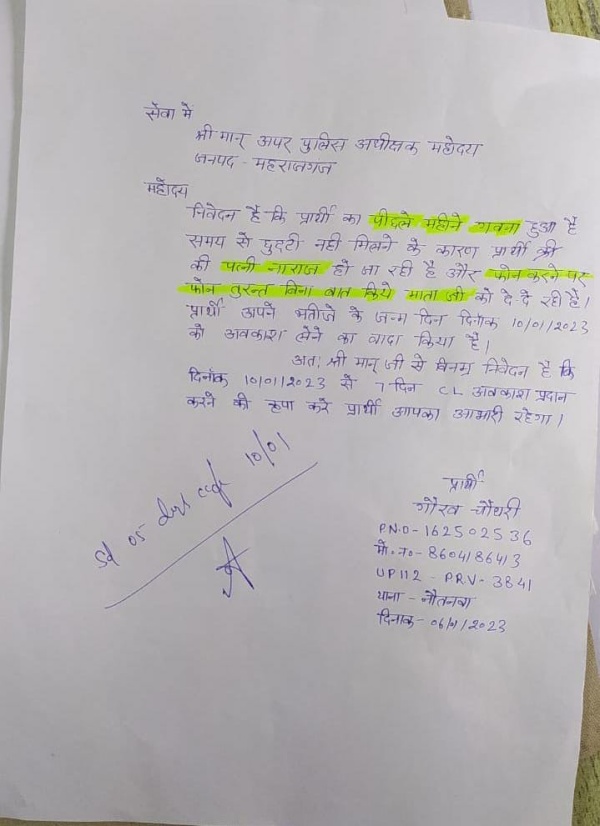 सेवा मे
श्री मान् अपर पुलिस अधीक्षक महोदय
जनपद - महराजगंज
महोदय
निवेदन है कि प्रार्थी का पीछले महीने गवना हुआ है
समय से छुट्टी नही मिलने के कारण प्रार्थी श्री
की पत्नी नाराज हो जा रही है और फोन करने पर
फोन तुरन्त बिना बात किये माता जी को दे दे रही है।
प्रार्थी अपने भतीजे के जन्म दिन दिनांक 10/01/2023
को अवकाश लेने का वादा किया है।
अतः श्री मान् जी से विनम्र निवेदन है कि
दिनांक 10/01/2023 से 7 दिन CL अवकाश प्रदान
करने की कृपा करे प्रार्थी आपका आभारी रहेगा।
05 days 10/01
प्रार्थी
गौरव चौधरी
P.N.O - 162502536
मो. न० - 8604186413
UP112 - P.R.V - 3841
थाना - नौतनवा
दिनांक - 06/01/2023